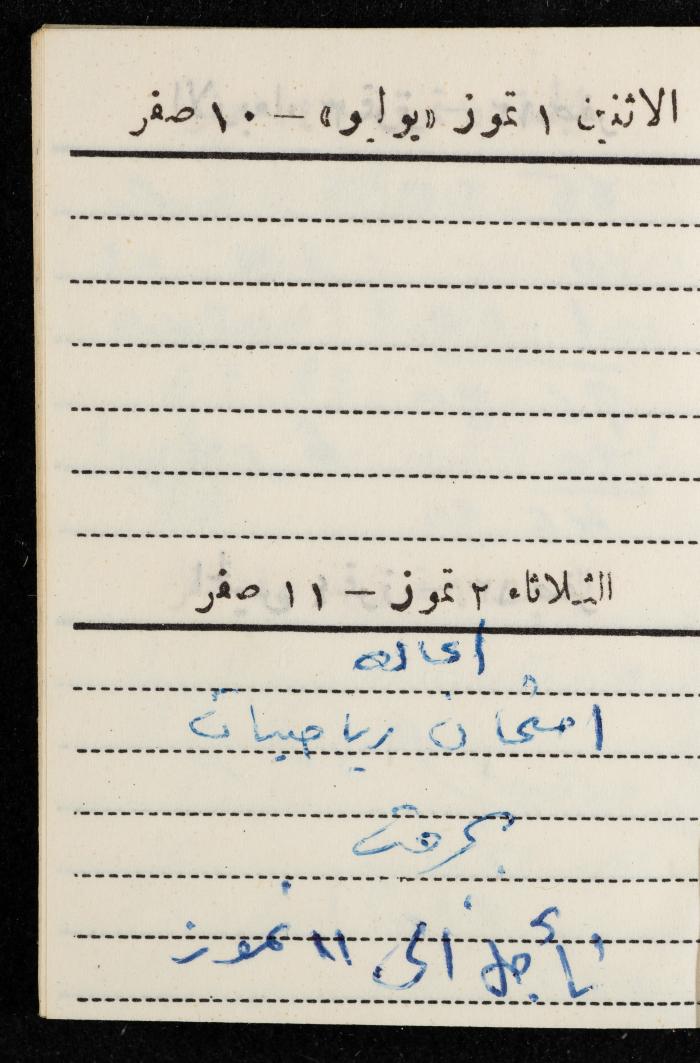 الاثنين ١ تموز «يوليو» – ١٠ صفر
الثلاثاء ٢ تموز – ١١ صفر
امتحان رياضيات
تأجل الى ١١ تموز